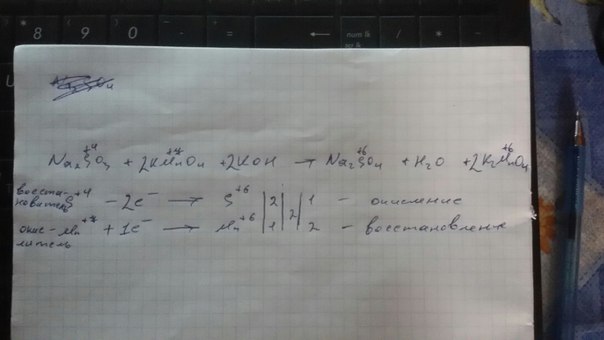 8 9 0 - = num lk / * -
+4 +7 +6 +6
Na₂SO₃ + 2KMnO₄ + 2KOH → Na₂SO₄ + H₂O + 2K₂MnO₄
восста-
новитель S⁺⁴ - 2e⁻ → S⁺⁶ | 2 | 2 | 1 - окисление
окис-
литель Mn⁺⁷ + 1e⁻ → Mn⁺⁶ | 1 | 2 - восстановление